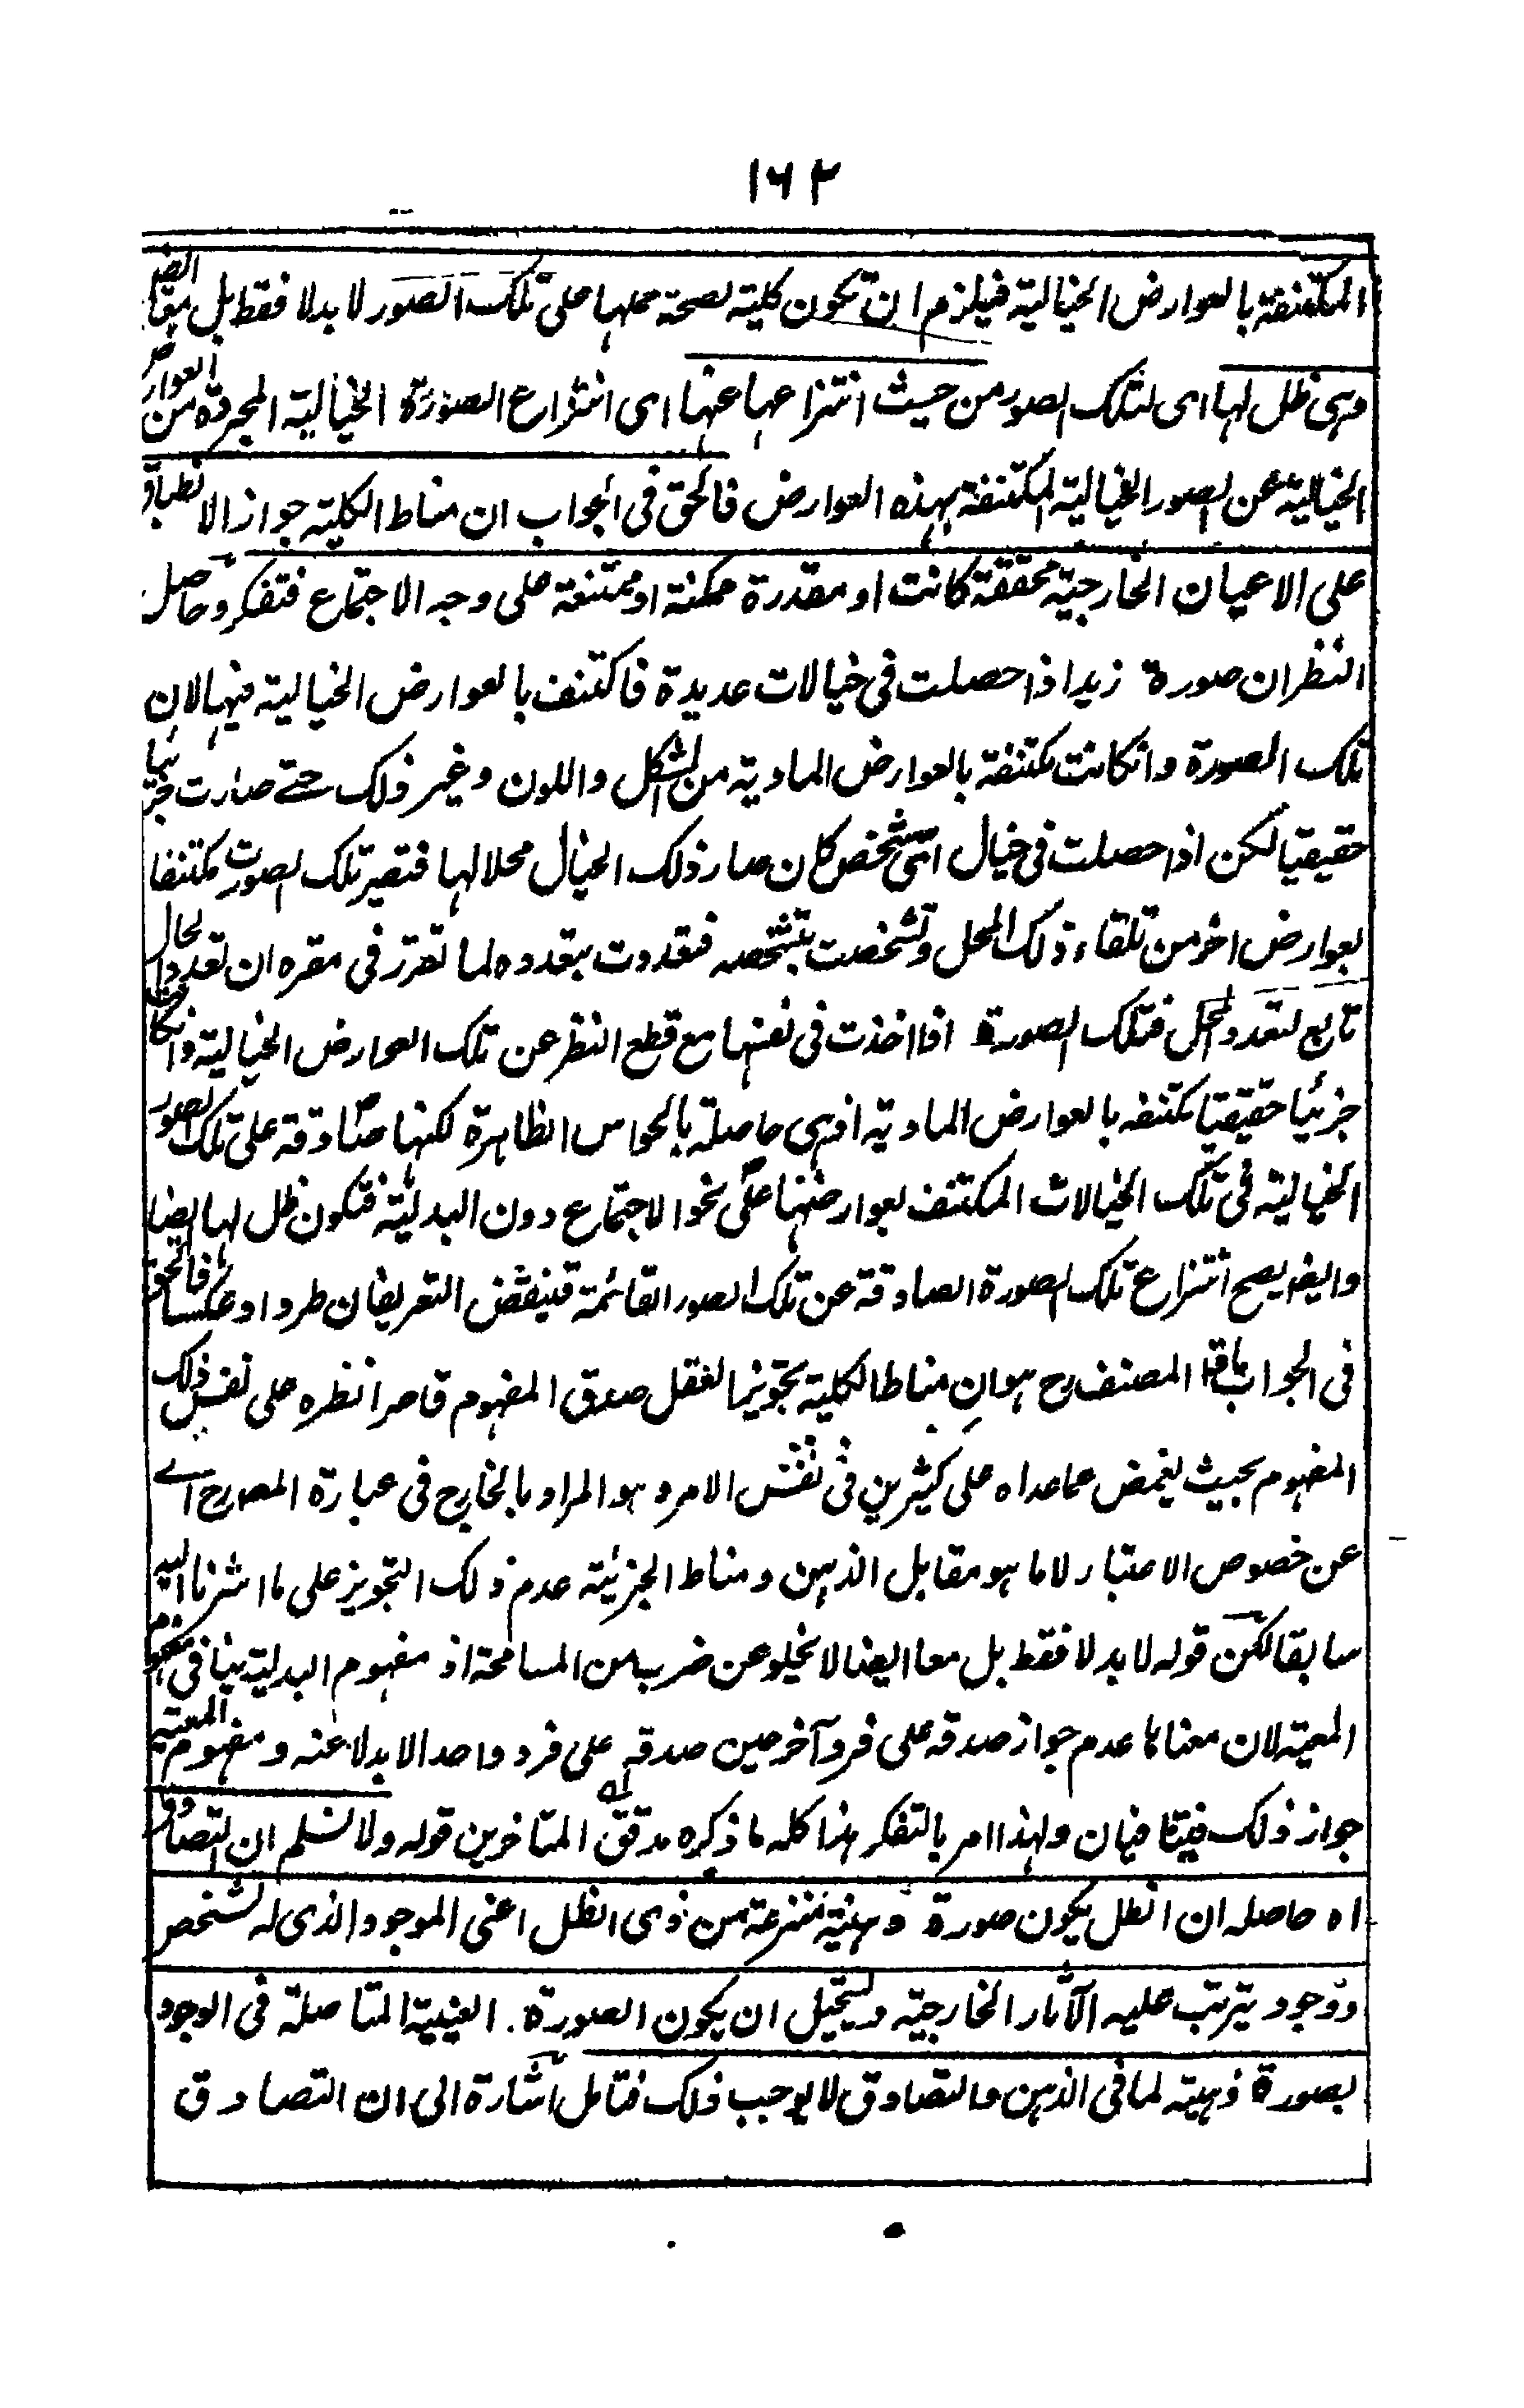 ١٦٢
المكتنفة بالعوارض الخيالية فيلزم ان تكون كلية لصحة حملها على تلك الصور لا بدلا فقط بل معا ايضا
وهى ظل لها اى لتلك الصور من حيث انتزاعها عنها اى انتزاع الصورة الخيالية المجردة من العوارض
الخيالية عن الصور الخيالية المكتنفة بهذه العوارض فالحق فى الجواب ان مناط الكلية جواز الانطباق
على الاعيان الخارجية محققة كانت او مقدرة ممكنة او ممتنعة على وجه الاجتماع فتفكر وحاصل
النظر ان صورة زيد اذا حصلت فى خيالات عديدة فاكتنف بالعوارض الخيالية فيها لان
تلك الصورة وانكانت مكتنفة بالعوارض المادية من الشكل واللون وغير ذلك حتے صارت جزئيا
حقيقيا لكن اذا حصلت فى خيال اىّ شخص كان صار ذلك الخيال محلا لها فتصير تلك الصورت مكتنفا
بعوارض اخر من تلقاء ذلك المحل وتشخصت بتشخصه فتعددت بتعدده لما تقرر فى مقره ان تعدد الحال
تابع لتعدد المحل فتلك الصورة اذا اخذت فى نفسها مع قطع النظر عن تلك العوارض الخيالية وانكانت
جزئيا حقيقيا مكتنفه بالعوارض المادية اذ هى حاصلة بالحواس الظاهرة لكنها صادقة على تلك الصور
الخيالية فى تلك الخيالات المكتنف بعوارضها على نحو الاجتماع دون البدلية فتكون ظل لها ايضا
وايضا يصح انتزاع تلك الصورة الصادقة عن تلك الصور القائمة فينقض التعريفان طردا وعكسا فالحق
فى الجواب ما قال المصنف رح هو ان مناط الكلية تجويز العقل صدق المفهوم قاصرا نظره على نفس ذلك
المفهوم بحيث يغمض عما عداه على كثيرين فى نفس الامر وهو المراد بالخارج فى عبارة المصرح اے
عن خصوص الاعتبار لا ما هو مقابل الذهن ومناط الجزئية عدم ذلك التجويز على ما اشرنا اليه
سابقا لكن قوله لا بدلا فقط بل معا ايضا لا يخلو عن ضرب من المسامحة اذ مفهوم البدلية ينافى مفهوم
المعية لان معناها عدم جواز صدقه على فرد آخر حين صدقه على فرد واحد الا بدلا عنه ومفهوم المعية
جواز ذلك فيتنافيان ولهذا امر بالتفكر هذا كله ما ذكره مدقق المتاخرين قوله ولا نسلم ان التصادق
اه حاصله ان الظل يكون صورة ذهنية منتزعة من ذى الظل اعنى الموجود الذى له تشخص
ووجود يترتب عليه الآثار الخارجية ويستحيل ان يكون الصورة العينية المتاصلة فى الوجود
بصورة ذهنية لما فى الذهن والتصادق لا يوجب ذلك فتامل اشارة الى ان التصادق